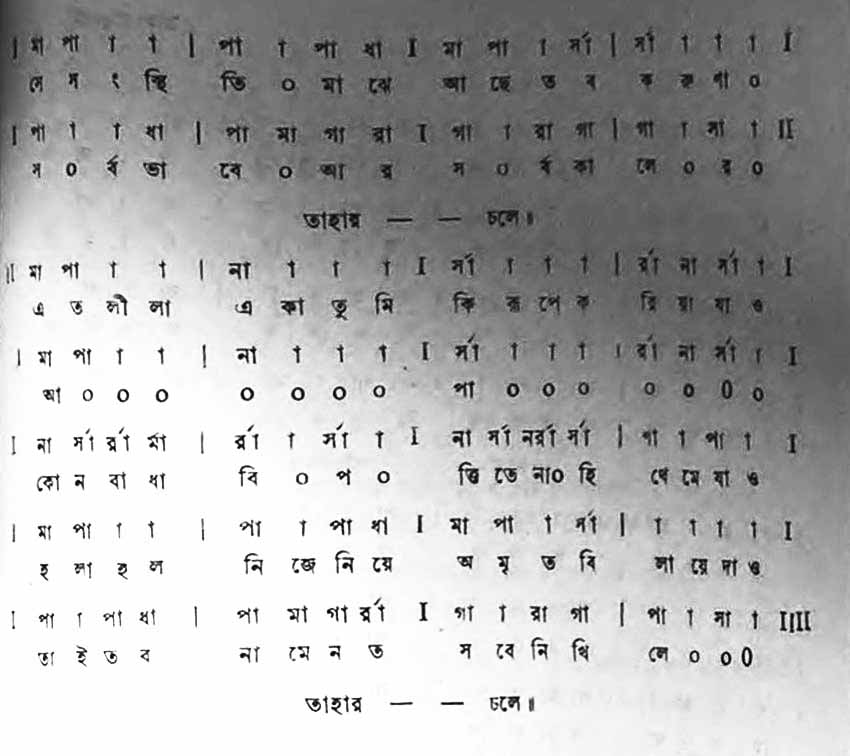 | মা পা া া | পা া পা ধা I মা পা া র্সা | র্সা া া া I
সে স ং স্থি তি ০ মা ঝে আ ছে ত ব ক রু ণা ০
| পা া া ধা | পা মা গা রা I গা া রা গা | গা া সা া II
স ০ র্ব ভা বে ০ আ র স ০ র্ব কা লে ০ র ০
তাহার — — চলে॥
II মা পা া া | না া া া I র্সা া া া | র্রা না র্সা া I
এ ত লী লা এ কা তু মি কি রূ পে ক রি য়া যা ও
| মা পা া া | না া া া I র্সা া া া | র্রা না র্সা া I
আ ০ ০ ০ ০ ০ ০ ০ পা ০ ০ ০ ০ ০ ০ ০
I না র্সা র্রা র্মা | র্রা া র্সা া I না র্সা নর্রা র্সা | ণা া পা া I
কো ন বা ধা বি ০ প ০ ত্তি তে না০ হি থে মে যা ও
| মা পা া া | পা া পা ধা I মা পা া র্সা | া া া া I
হ লা হ ল নি জে নি য়ে অ মৃ ত বি লা য়ে দা ও
I পা া পা ধা | পা মা গা র্রা I গা া রা গা | পা া সা া IIII
তা ই ত ব না মে ন ত স বে নি খি লে ০ ০ ০
তাহার — — চলে॥